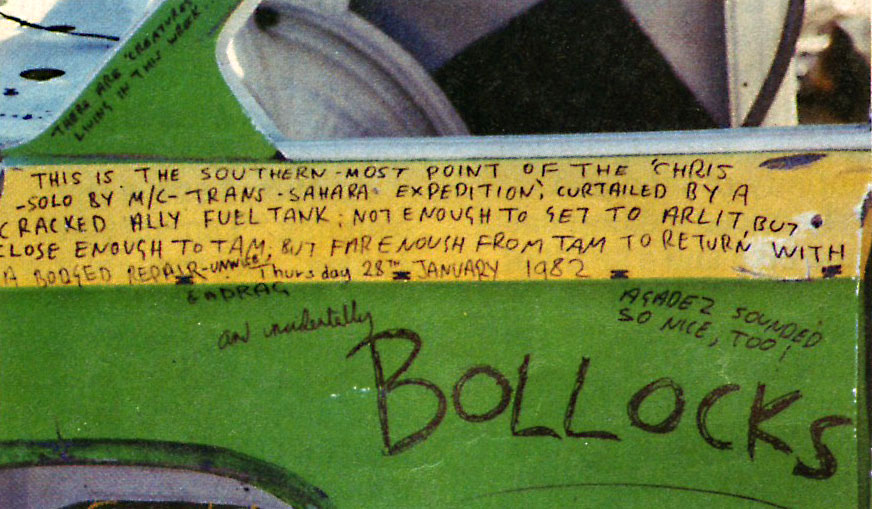 THERE ARE 'CREATURES'
LIVING IN THIS WRECK
THIS IS THE SOUTHERN-MOST POINT OF THE 'CHRIS
-SOLO BY M/C-TRANS-SAHARA EXPEDITION', CURTAILED BY A
CRACKED ALLY FUEL TANK: NOT ENOUGH TO GET TO ARLIT, BUT
CLOSE ENOUGH TO TAM, BUT FAR ENOUGH FROM TAM TO RETURN WITH
A BODGED REPAIR-UNWISE Thursday 28TH JANUARY 1982
& A DRAG
and incidentally
BOLLOCKS
AGADEZ SOUNDED
SO NICE, TOO!